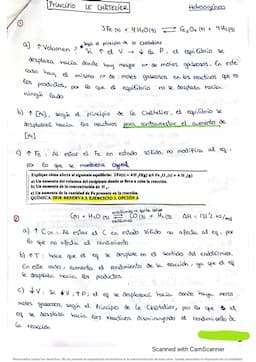 ① Principio LE CHATELIER Heterogéneo
3Fe (s) + 4H₂O (g) ⇌ Fe₃O₄ (s) + 4H₂ (g)
según el principio de Le Chatelier
a) ↑ Volumen : Si ↑ el V → ↓ P, el equilibrio se
desplaza hacia donde hay mayor nº de moles gaseosos. En este
caso hay el mismo nº de moles gaseosos en los reactivos que en
los productos, por lo que el equilibrio no se desplaza hacia
ningún lado
b) ↑ [H₂], según el principio de Le Chatelier, el equilibrio se
desplazará hacia los reactivos para contrarrestar el aumento de
[H₂]
c) ↑ Fe . Al estar el Fe en estado sólido no modifica al eq.
por lo que se mantiene igual
Explique cómo afecta al siguiente equilibrio: 3Fe(s) + 4H₂O(g) ⇌ Fe₃O₄(s) + 4H₂(g)
a) Un aumento del volumen del recipiente donde se lleva a cabo la reacción.
b) Un aumento de la concentración de H₂.
c) Un aumento de la cantidad de Fe presente en la reacción.
QUÍMICA. 2018. RESERVA 2. EJERCICIO 3. OPCIÓN A
C(s) + H₂O (g) ⇌ CO (g) + H₂ (g) ΔH = 131'2 kJ/mol
a) ↑ C(s) . Al estar el C en estado sólido no afecta al eq. por
lo que no afecta al rendimiento
b) ↑ T : hace que el eq se desplace en el sentido del endotérmico.
En este caso, aumenta el rendimiento de la reacción, ya que el eq
se desplaza hacia los productos
c) ↓ V . Si ↓ V, ↑ P; el eq se desplazará hacia donde haya menos
moles gaseosos según el Principio de Le Chatelier, por lo que el
eq se desplaza hacia los reactivos disminuyendo el rendimiento de
la reacción
Scanned with CamScanner